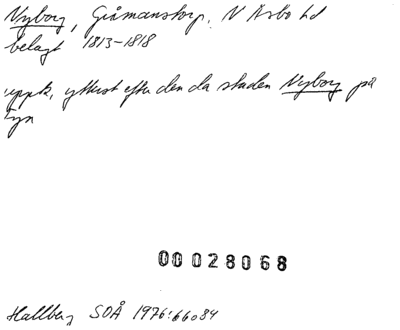 Nyborg, Gråmanstorp, N Åsbo hd
belagt 1813-1818
uppk, ytterst efter den da staden Nyborg på
Fyn
00028068
Hallberg SOÅ 1976:66o84